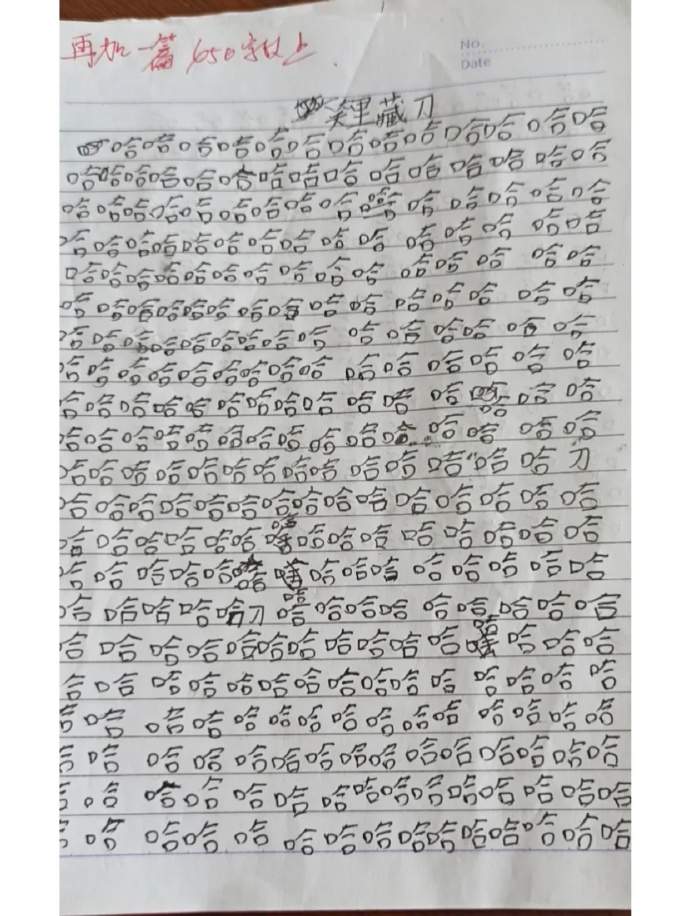 再加一篇650字以上
No.
Date
里藏刀
哈哈哈哈哈哈哈哈哈哈哈哈哈
哈哈哈哈哈哈哈哈哈哈哈哈哈哈哈
哈哈哈哈哈哈哈哈哈哈哈哈哈哈哈
哈哈哈哈哈哈哈哈哈哈哈哈哈哈哈
哈哈哈哈哈哈哈哈哈哈哈哈哈哈哈
哈哈哈哈哈哈哈哈哈哈哈哈哈哈哈
哈哈哈哈哈哈哈哈哈哈哈哈哈哈哈
哈哈哈哈哈哈哈哈哈哈哈哈哈哈哈
哈哈哈哈哈哈哈哈哈哈哈哈哈哈哈
哈哈哈哈哈哈哈哈哈哈哈哈哈哈哈
哈哈哈哈哈哈哈哈哈哈哈哈哈哈刀
哈哈哈哈哈哈哈哈哈哈哈哈哈哈哈
哈哈哈哈哈哈哈哈哈哈哈哈哈哈哈
哈哈哈哈哈哈哈哈哈哈哈哈哈哈哈
哈哈哈哈哈刀哈哈哈哈哈哈哈哈哈
哈哈哈哈哈哈哈哈哈哈哈哈哈哈哈
哈哈哈哈哈哈哈哈哈哈哈哈哈哈哈
哈哈哈哈哈哈哈哈哈哈哈哈哈哈哈
哈哈哈哈哈哈哈哈哈哈哈哈哈哈哈
哈哈哈哈哈哈哈哈哈哈哈哈哈哈哈
哈哈哈哈哈哈哈哈哈哈哈哈哈哈哈